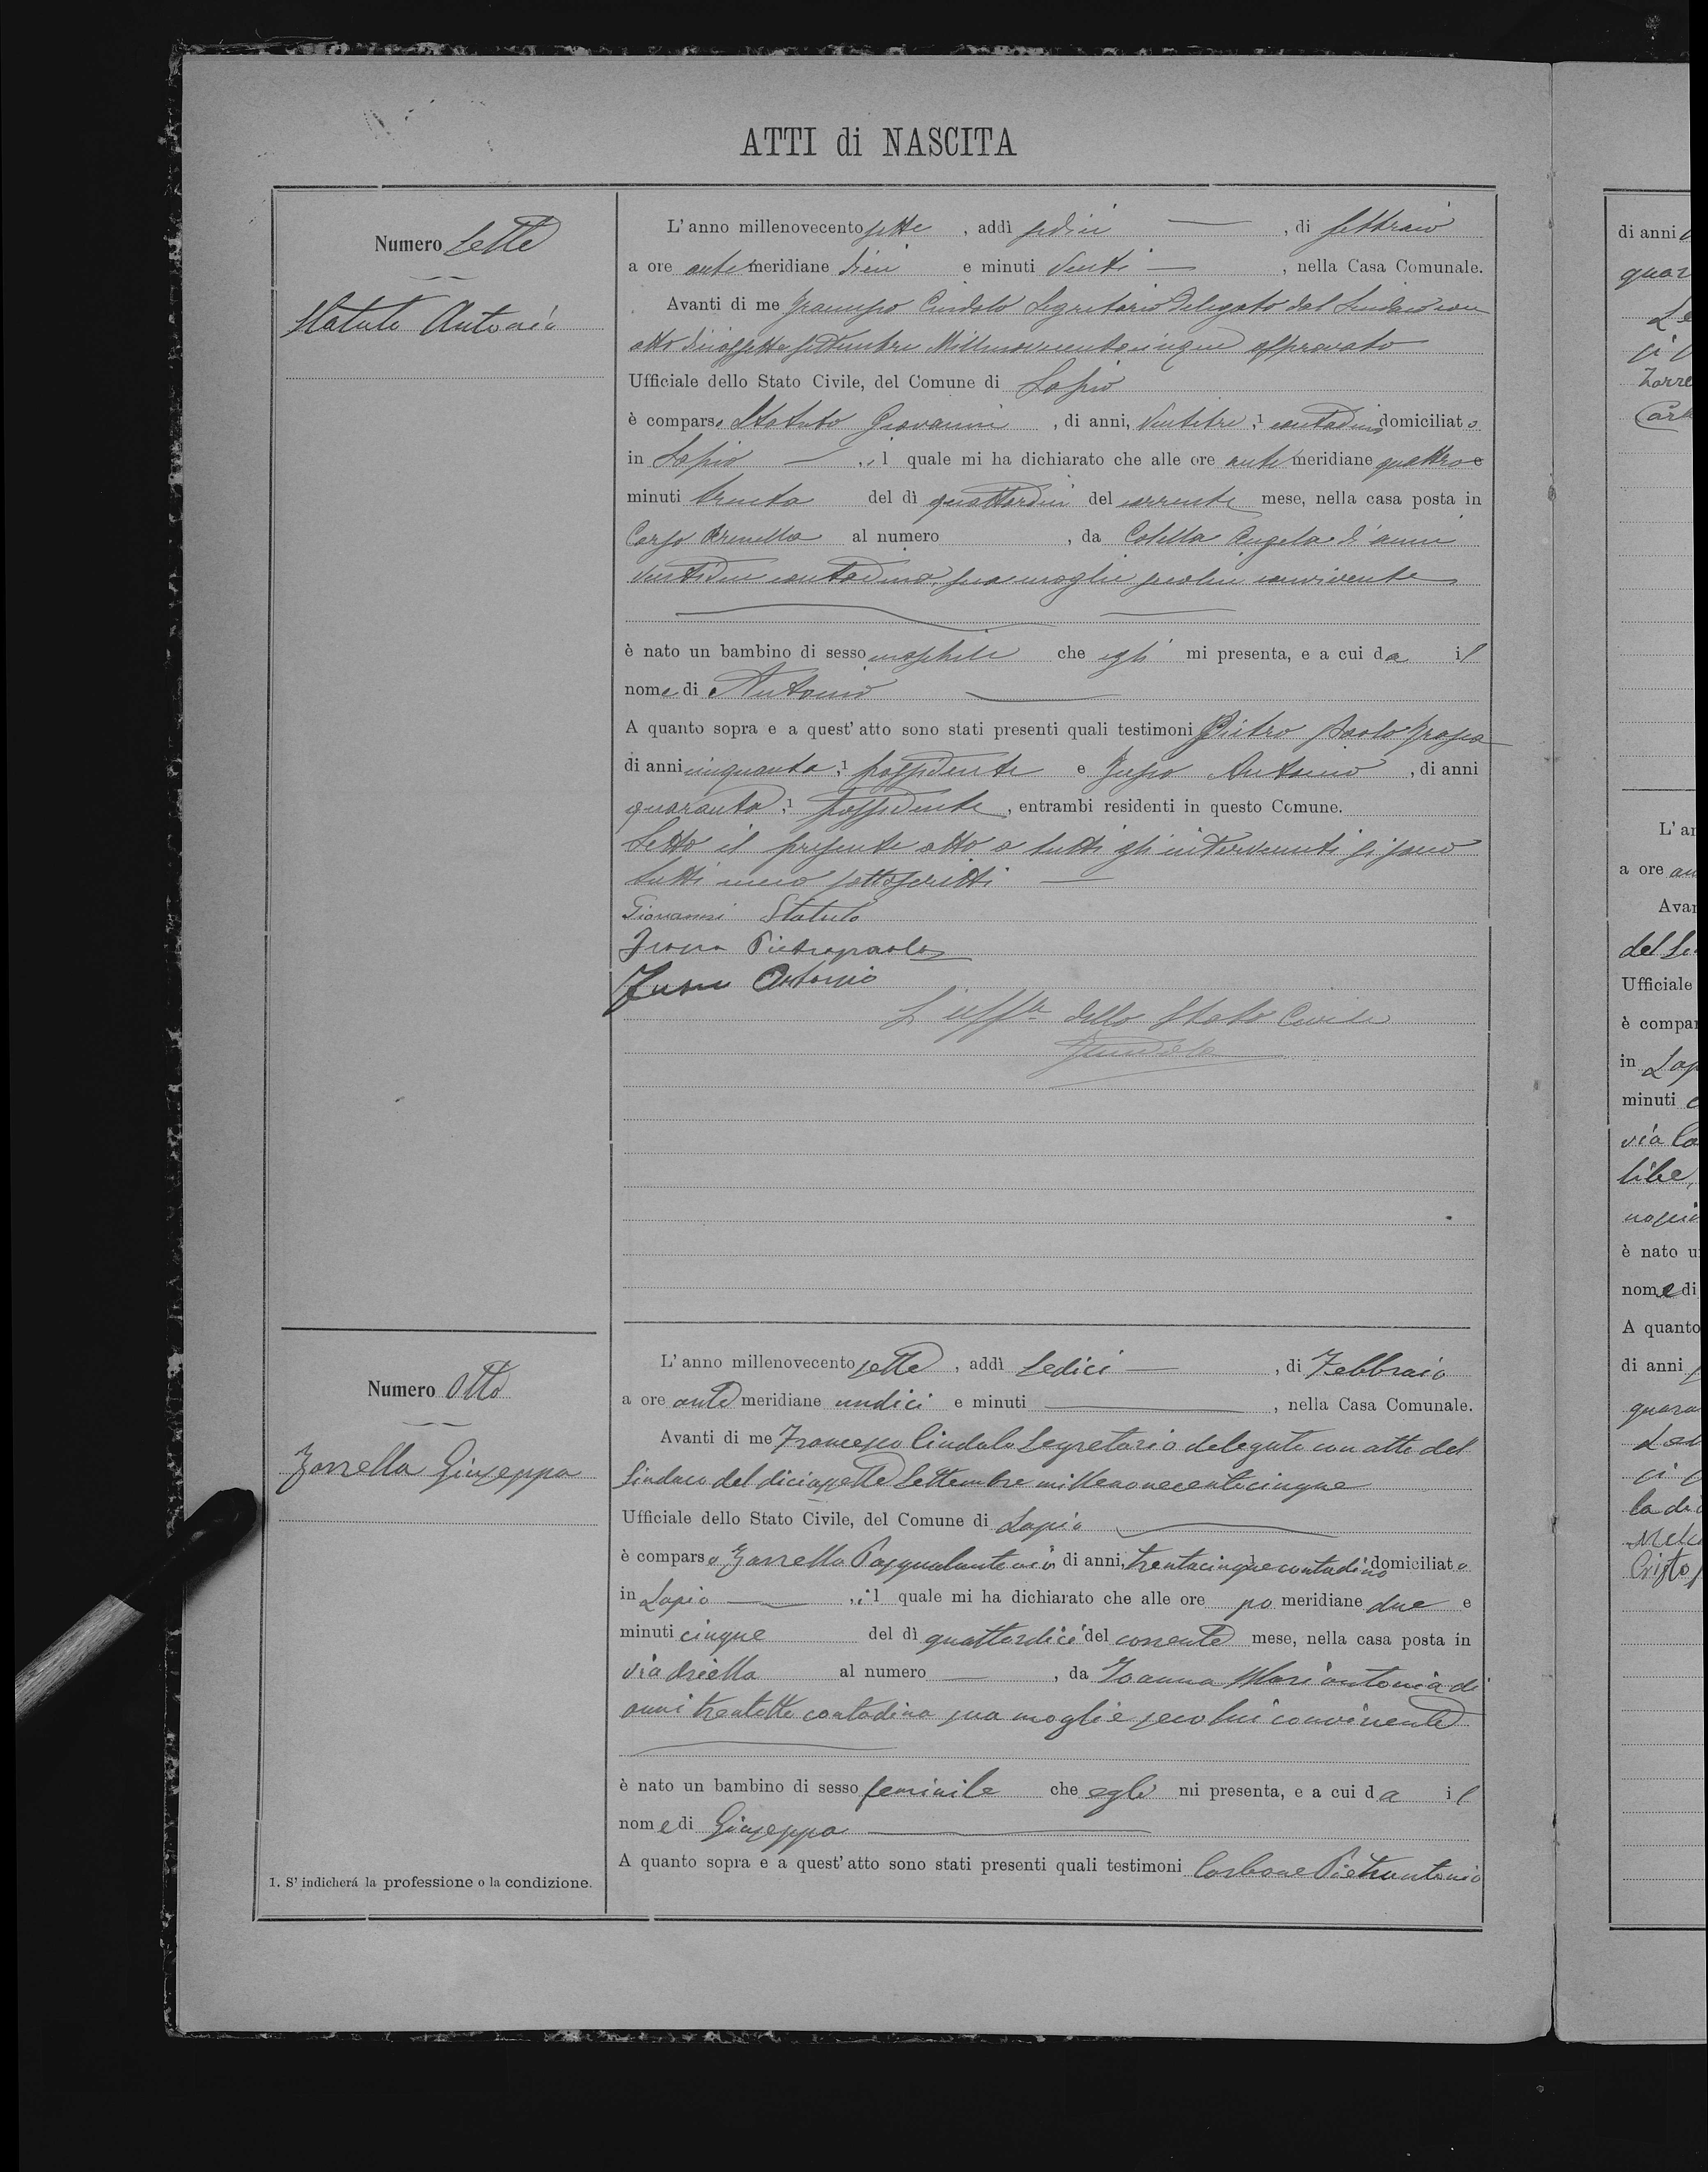 ATTI di NASCITA
Numero Sette
Statuto Antonio
L'anno millenovecento sette, addì sedici, di febbraio
a ore antimeridiane dieci e minuti venti, nella Casa Comunale.
Avanti di me Francesco Cindolo Segretario Delegato dal Sindaco con
atto diciassette settembre Millenovecentocinque approvato
Ufficiale dello Stato Civile, del Comune di Lapio
è comparso Statuto Giovanni, di anni, ventitre, 1 contadino domiciliato
in Lapio, il quale mi ha dichiarato che alle ore antimeridiane quattro e
minuti trenta del dì quattordici del corrente mese, nella casa posta in
Corso al numero , da Colella Angela d'anni
ventidue contadina, sua moglie seco lui convivente
è nato un bambino di sesso maschile che egli mi presenta, e a cui da il
nome di Antonio
A quanto sopra e a quest'atto sono stati presenti quali testimoni Pietro Paolo
di anni cinquanta, 1 possidente e Antonio, di anni
quaranta, 1 possidente, entrambi residenti in questo Comune.
Letto il presente atto a tutti gli intervenuti si sono
tutti meco sottoscritti
Giovanni Statuto
Pietropaolo
Antonio
L'uff.le dello Stato Civile
FCindolo
Numero Otto
Zarrella Giuseppa
L'anno millenovecento sette, addì Sedici, di Febbraio
a ore antemeridiane undici e minuti , nella Casa Comunale.
Avanti di me Francesco Cindolo Segretario delegato con atto del
Sindaco del diciassette Settembre millenovecentocinque
Ufficiale dello Stato Civile, del Comune di Lapio
è comparso Zarrella Pasqualantonio, di anni, trentacinque 1 contadino domiciliato
in Lapio, il quale mi ha dichiarato che alle ore pomeridiane due e
minuti cinque del dì quattordici del corrente mese, nella casa posta in
via al numero , da Ioanna Mariantonia di
anni trentotto contadina sua moglie seco lui convivente
è nato un bambino di sesso feminile che egli mi presenta, e a cui da il
nome di Giuseppa
A quanto sopra e a quest'atto sono stati presenti quali testimoni Carbone Pietrantonio
1. S'indicherá la professione o la condizione.
di anni
quar
L'an
a ore an
Avan
del Si
Ufficiale
è compar
in Lap
minuti
via
è nato u
nome di
A quanto
di anni
quara